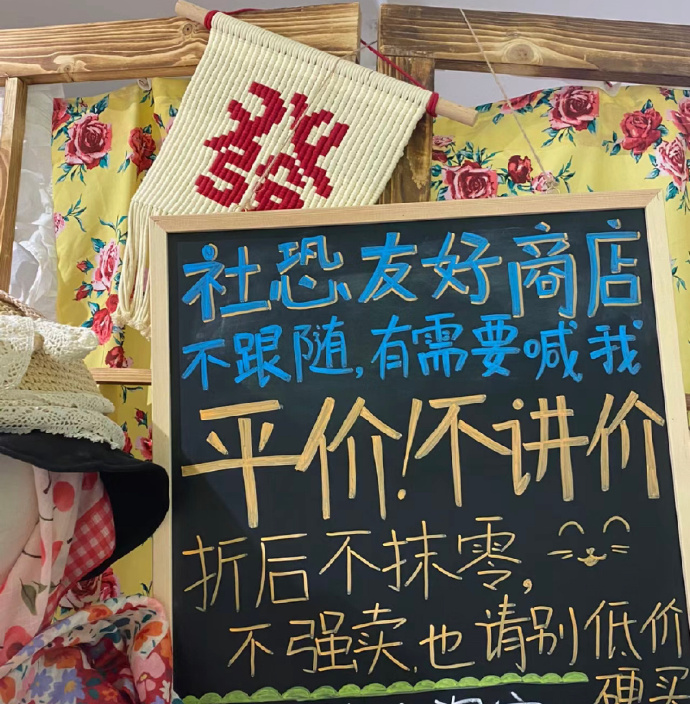 社恐友好商店
不跟随,有需要喊我
平价!不讲价
折后不抹零,
不强卖,也请别低价
硬买